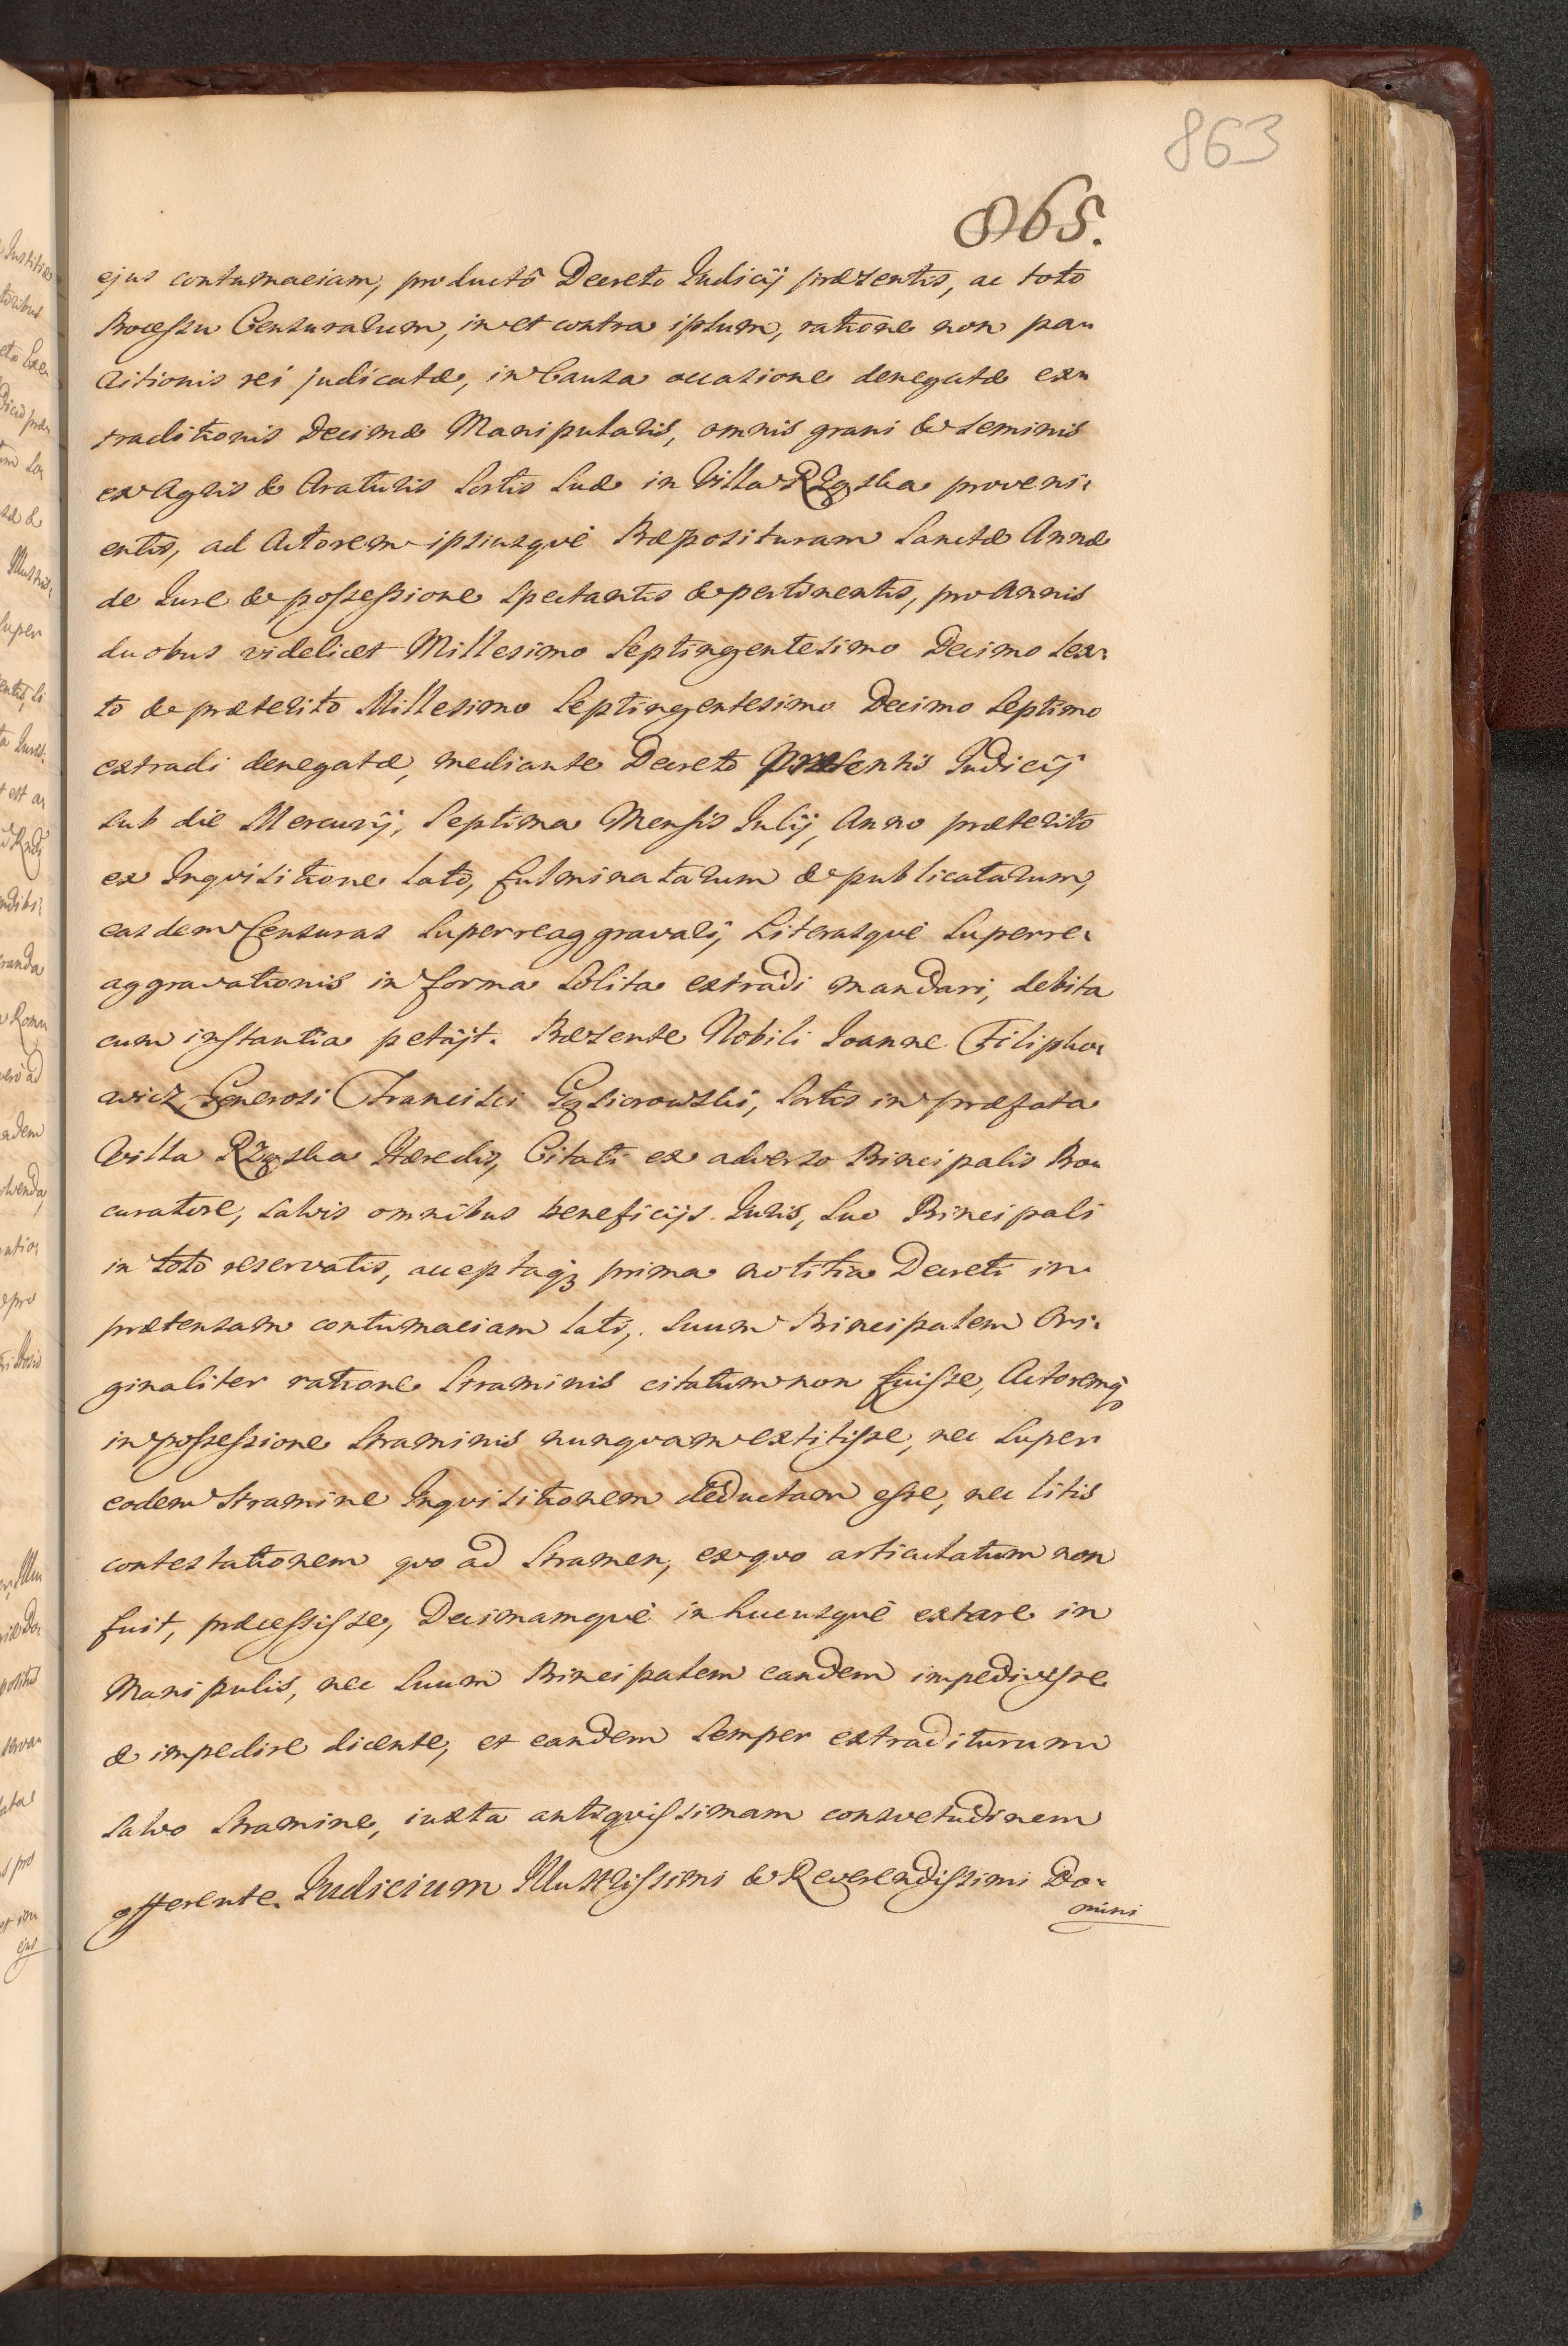 863
865.
ejus contumaciam, productô Decreto Judicij præsentis, ac toto
Processu Censurarum, in et contra ipsum, ratione non pa-
ritionis rei judicatæ, in Causa occasione denegatæ ex-
traditionis Decimæ Manipularis, omnis grani & seminis
ex Agris & Araturis Sortis suæ in Villa Rząska proveni-
entis, ad Actorem ipsiusquè Præposituram Sanctæ Annæ
de Jure & possessione spectantis & pertinentis, pro Annis
duobus videlicet Millesimo Septingentesimo Decimo Sex-
to & præterito Millesimo Septingentesimo Decimo Septimo
extradi denegatæ, mediante Decreto præsentis Judicij
sub die Mercurij, Septima Mensis Julij, Anno præterito
ex Inquisitione lato, fulminatarum & publicatarum,
easdem Censuras superreaggravari, Literasquè superre-
aggravationis in forma solita extradi mandari, debita
cum instantia petijt. Præsente Nobili Joanne Filipho-
wicz Generosi Francisci Gąsiorowski, Sortis in præfata
Villa Rząska Hæredis, Citati ex adverso Principalis Pro-
curatore, salvis omnibus beneficijs Juris, suo Principali
in toto reservatis, acceptaq; prima notitia Decreti in
prætensam contumaciam lati, suum Principalem Ori-
ginaliter ratione Straminis citatum non fuisse, Actoremq;
in possessione Straminis nunquam extitisse, nec super
eodem Stramine Inquisitionem deductam esse, nec litis
contestationem quo ad Stramen, ex quo articulatum non
fuit, præcessisse, Decimamquè in hucusquè extare in
Manipulis, nec suum Principalem eandem impedivisse
& impedire dicente, et eandem semper extraditurum
salvo Stramine, iuxta antiquissimam consvetudinem
offerente. Judicium Illustrissimi & Reverendissimi Do-
mini